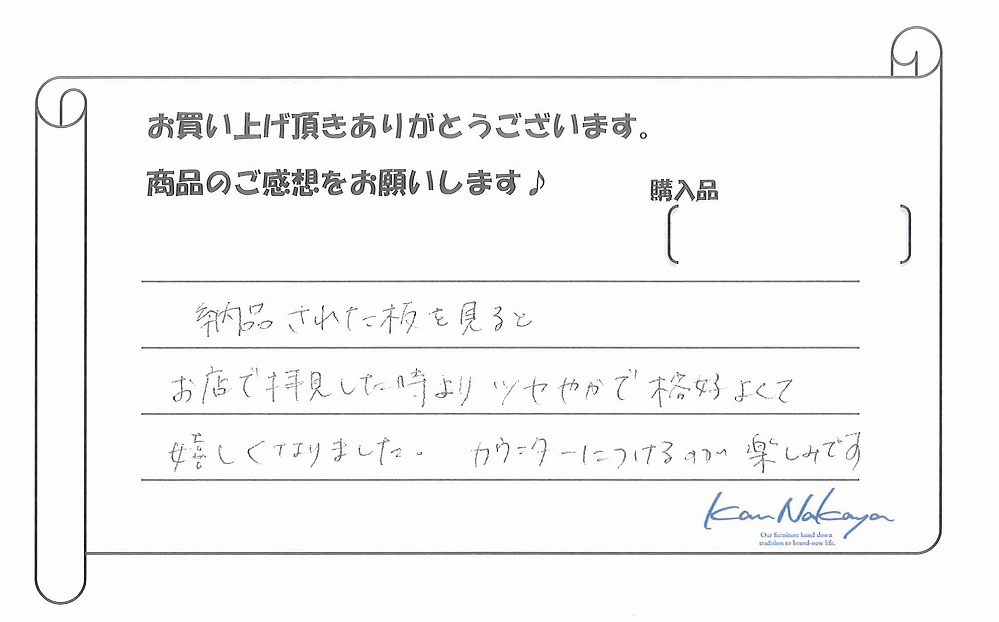 お買い上げ頂きありがとうございます。
商品のご感想をお願いします♪
購入品
納品された板を見ると
お店で拝見した時より ツヤやかで 格好よくて
嬉しくなりました。 カウンターにつけるのが 楽しみです
Kan Nakaya
Our furniture hand down
tradition to brand-new life.